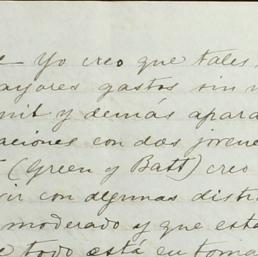 Yo creo que tales
ayores gastos sin
mit y demás apara
aciones con dos jovene
(Green y Batt) creo
ir con algunas distri
moderado y que esta
e todo está en toma